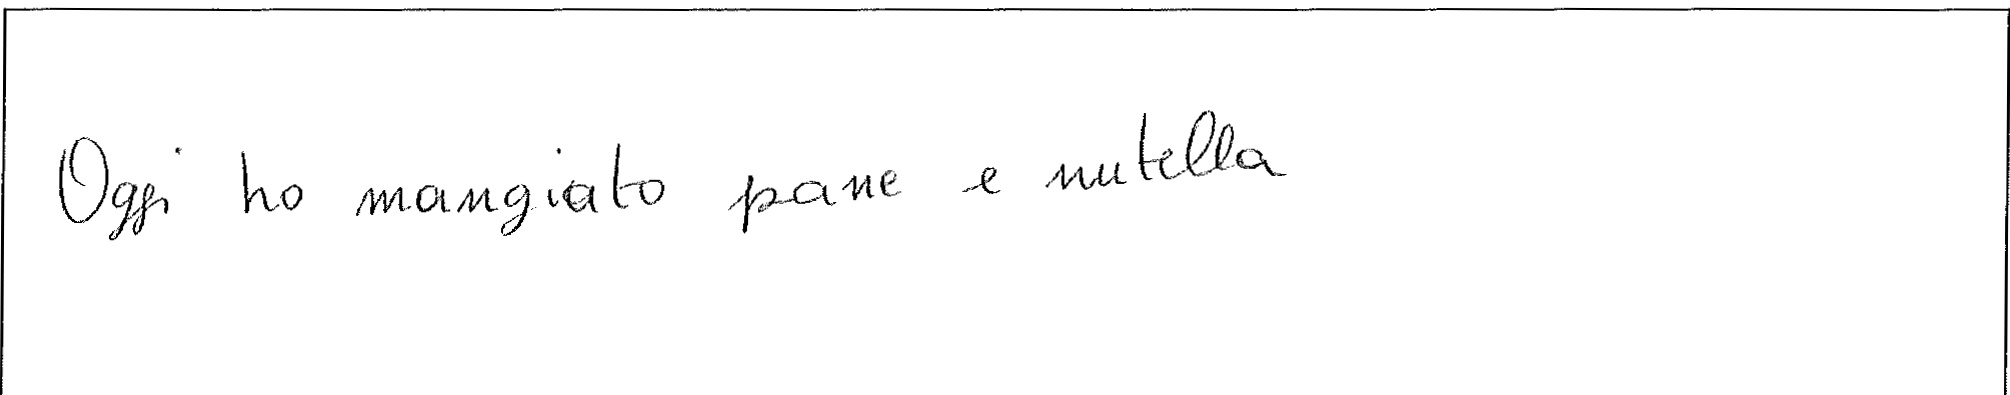 Oggi ho mangiato pane e nutella